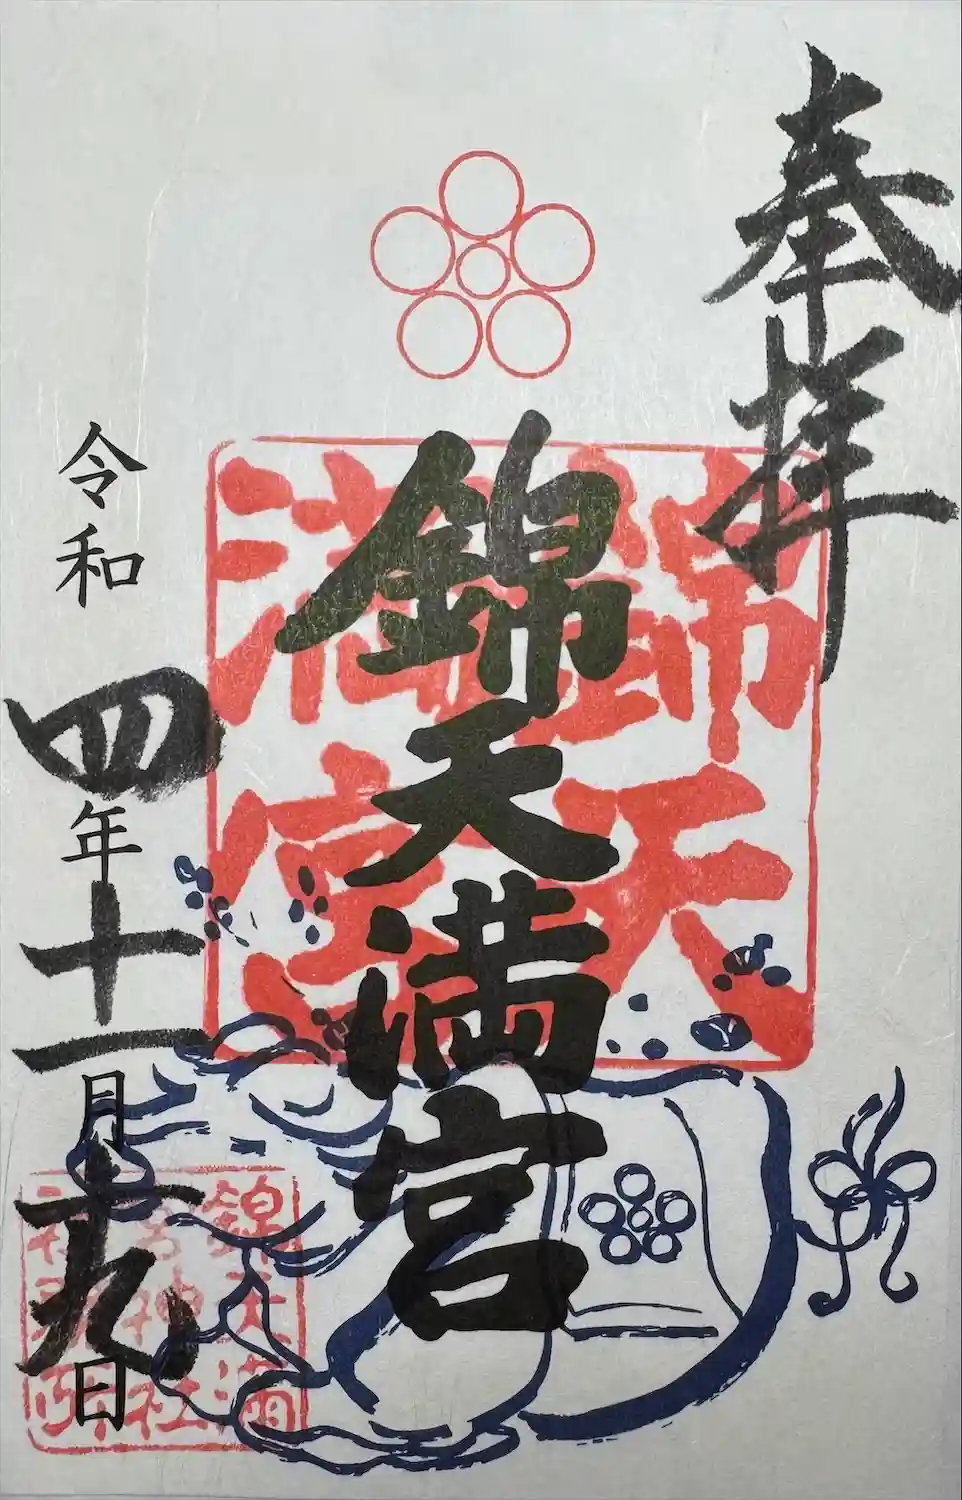 奉拝
錦天満宮
錦天
満宮
令和四年十一月十九日
錦天満
宮神社
社務所印